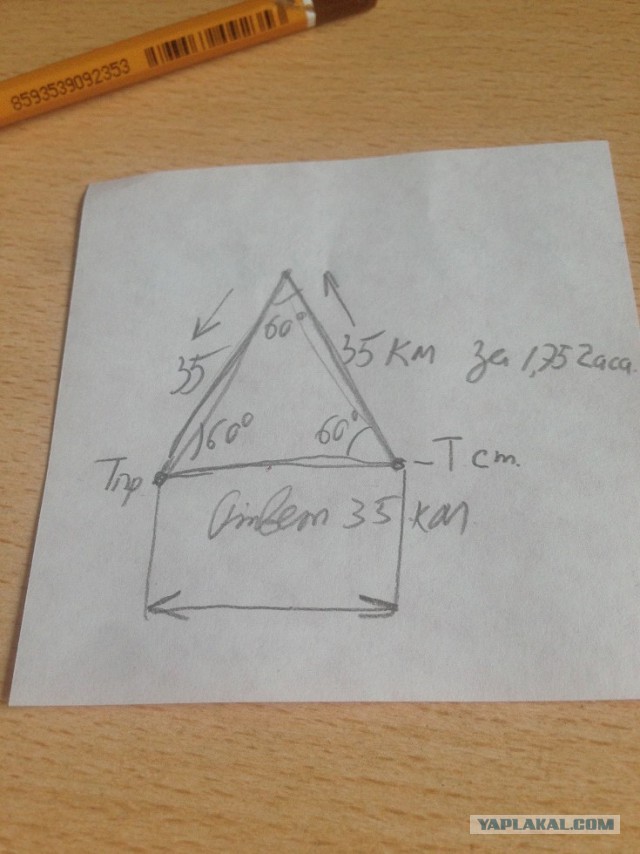 8593539092353
60°
35
35 км за 1,75 часа.
60°
60°
Тпр.
Т ст.
Ответ 35 км.
YAPLAKAL.COM